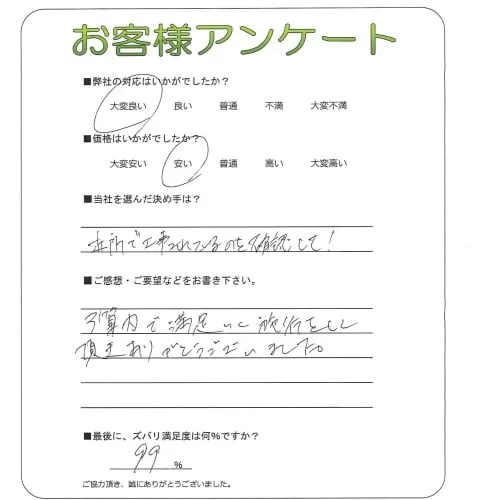 お客様アンケート
■弊社の対応はいかがでしたか？
大変良い 良い 普通 不満 大変不満
■価格はいかがでしたか？
大変安い 安い 普通 高い 大変高い
■当社を選んだ決め手は？
近所で工事されているのを確認して！
■ご感想・ご要望などをお書き下さい。
予算内で満足いく施行をして
頂きありがとうございました。
■最後に、ズバリ満足度は何%ですか？
99 %
ご協力頂き、誠にありがとうございました。